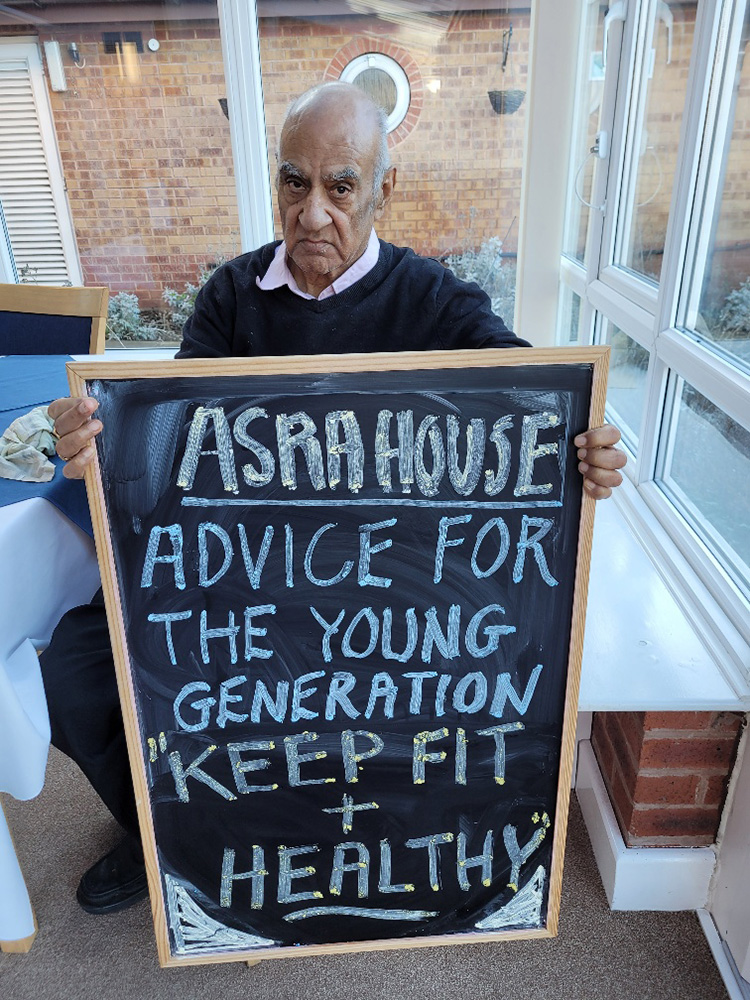 ASRA HOUSE
ADVICE FOR
THE YOUNG
GENERATION
"KEEP FIT
+
HEALTHY"